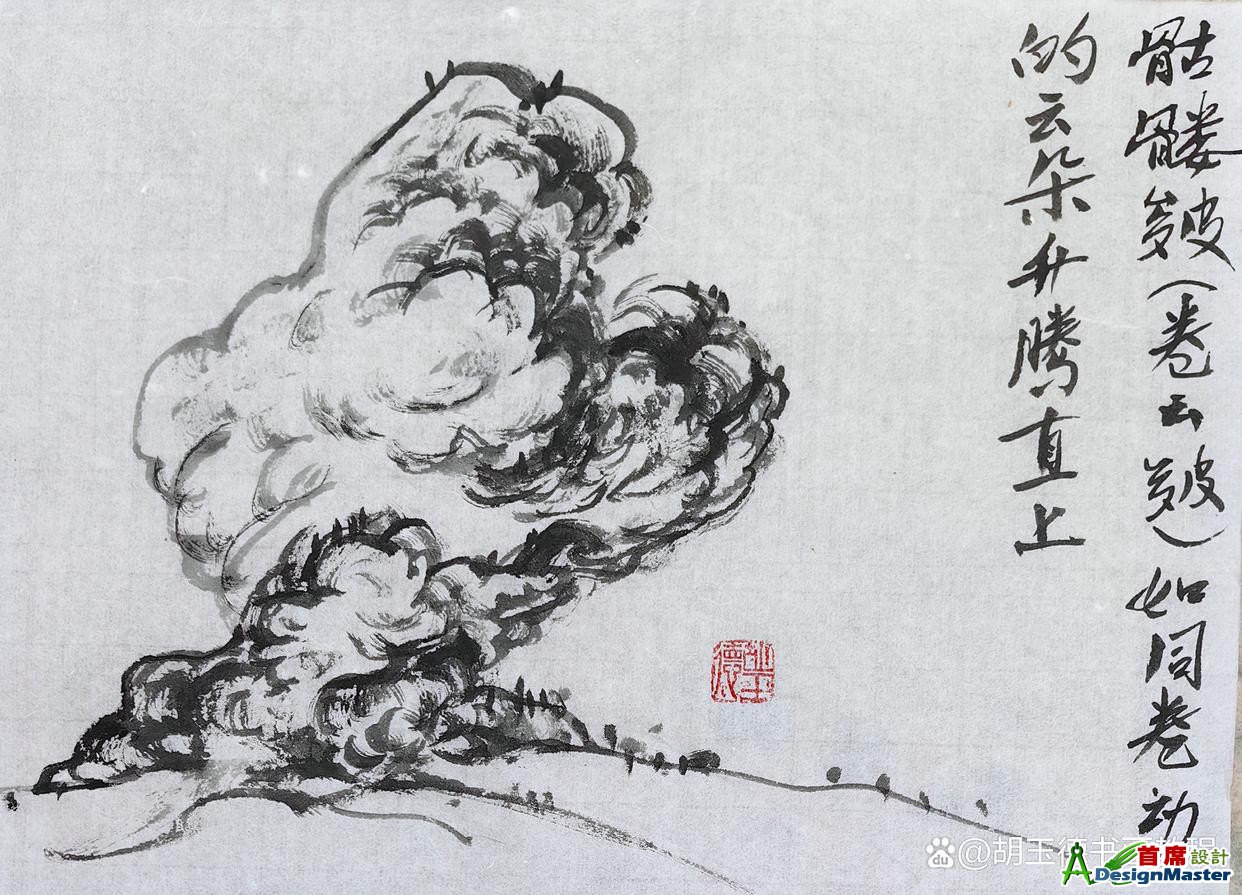 骷髅皴(卷云皴)如同卷动
的云朵升腾直上
胡玉德
@胡玉德书画教程
首席設計
ADesignMaster